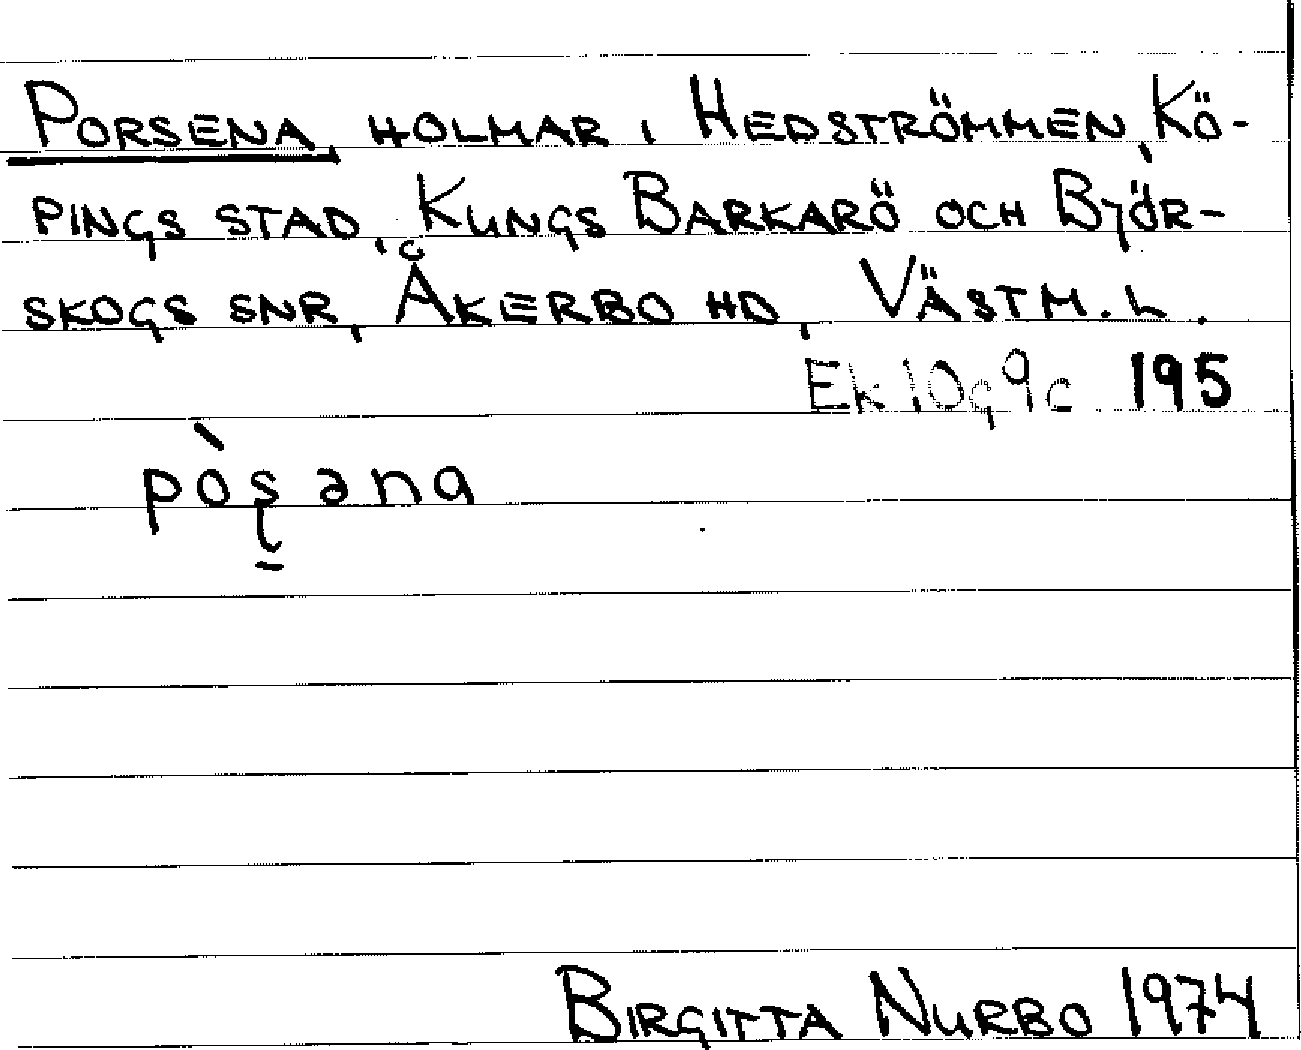 PORSENA, HOLMAR I HEDSTRÖMMEN, KÖ-
PINGS STAD, KUNGS BARKARÖ OCH BJÖR-
SKOGS SNR, ÅKERBO HD, VÄSTM. L.
Ek 10g 9c 195
pòșəna
BIRGITTA NURBO 1974